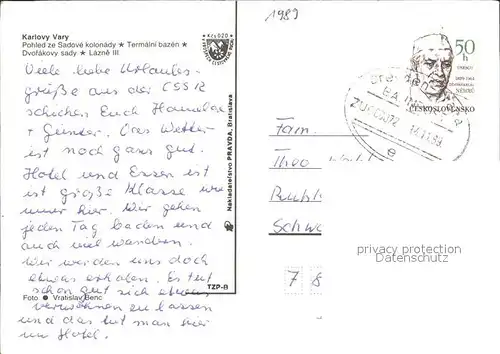 1989
Karlovy Vary
Pohled ze Sadové kolonády ★ Termální bazén ★
Dvořákovy sady ★ Lázně III
Kčs 0,20
Viele liebe Urlaubs-
grüße aus der CSSR
schicken Euch Hannelore
+ Günter. Das Wetter
ist noch ganz gut.
Hotel und Essen ist
ist große Klasse wie
immer hier. Wir gehen
jeden Tag baden und
auch viel wandern.
Wir werden uns doch
etwas erholen. Es tut
schon gut sich etwas
verwöhnen zu lassen
und das tut man hier
im Hotel.
Foto ● Vratislav Benc
Nakladatelství PRAVDA, Bratislava
TZP-B
50
h
ČESKOSLOVENSKO
Dresden
BAHNPOST
ZUG
e
Fam.
Theo
Ruhl
Schwe
7 8
privacy protection
Datenschutz